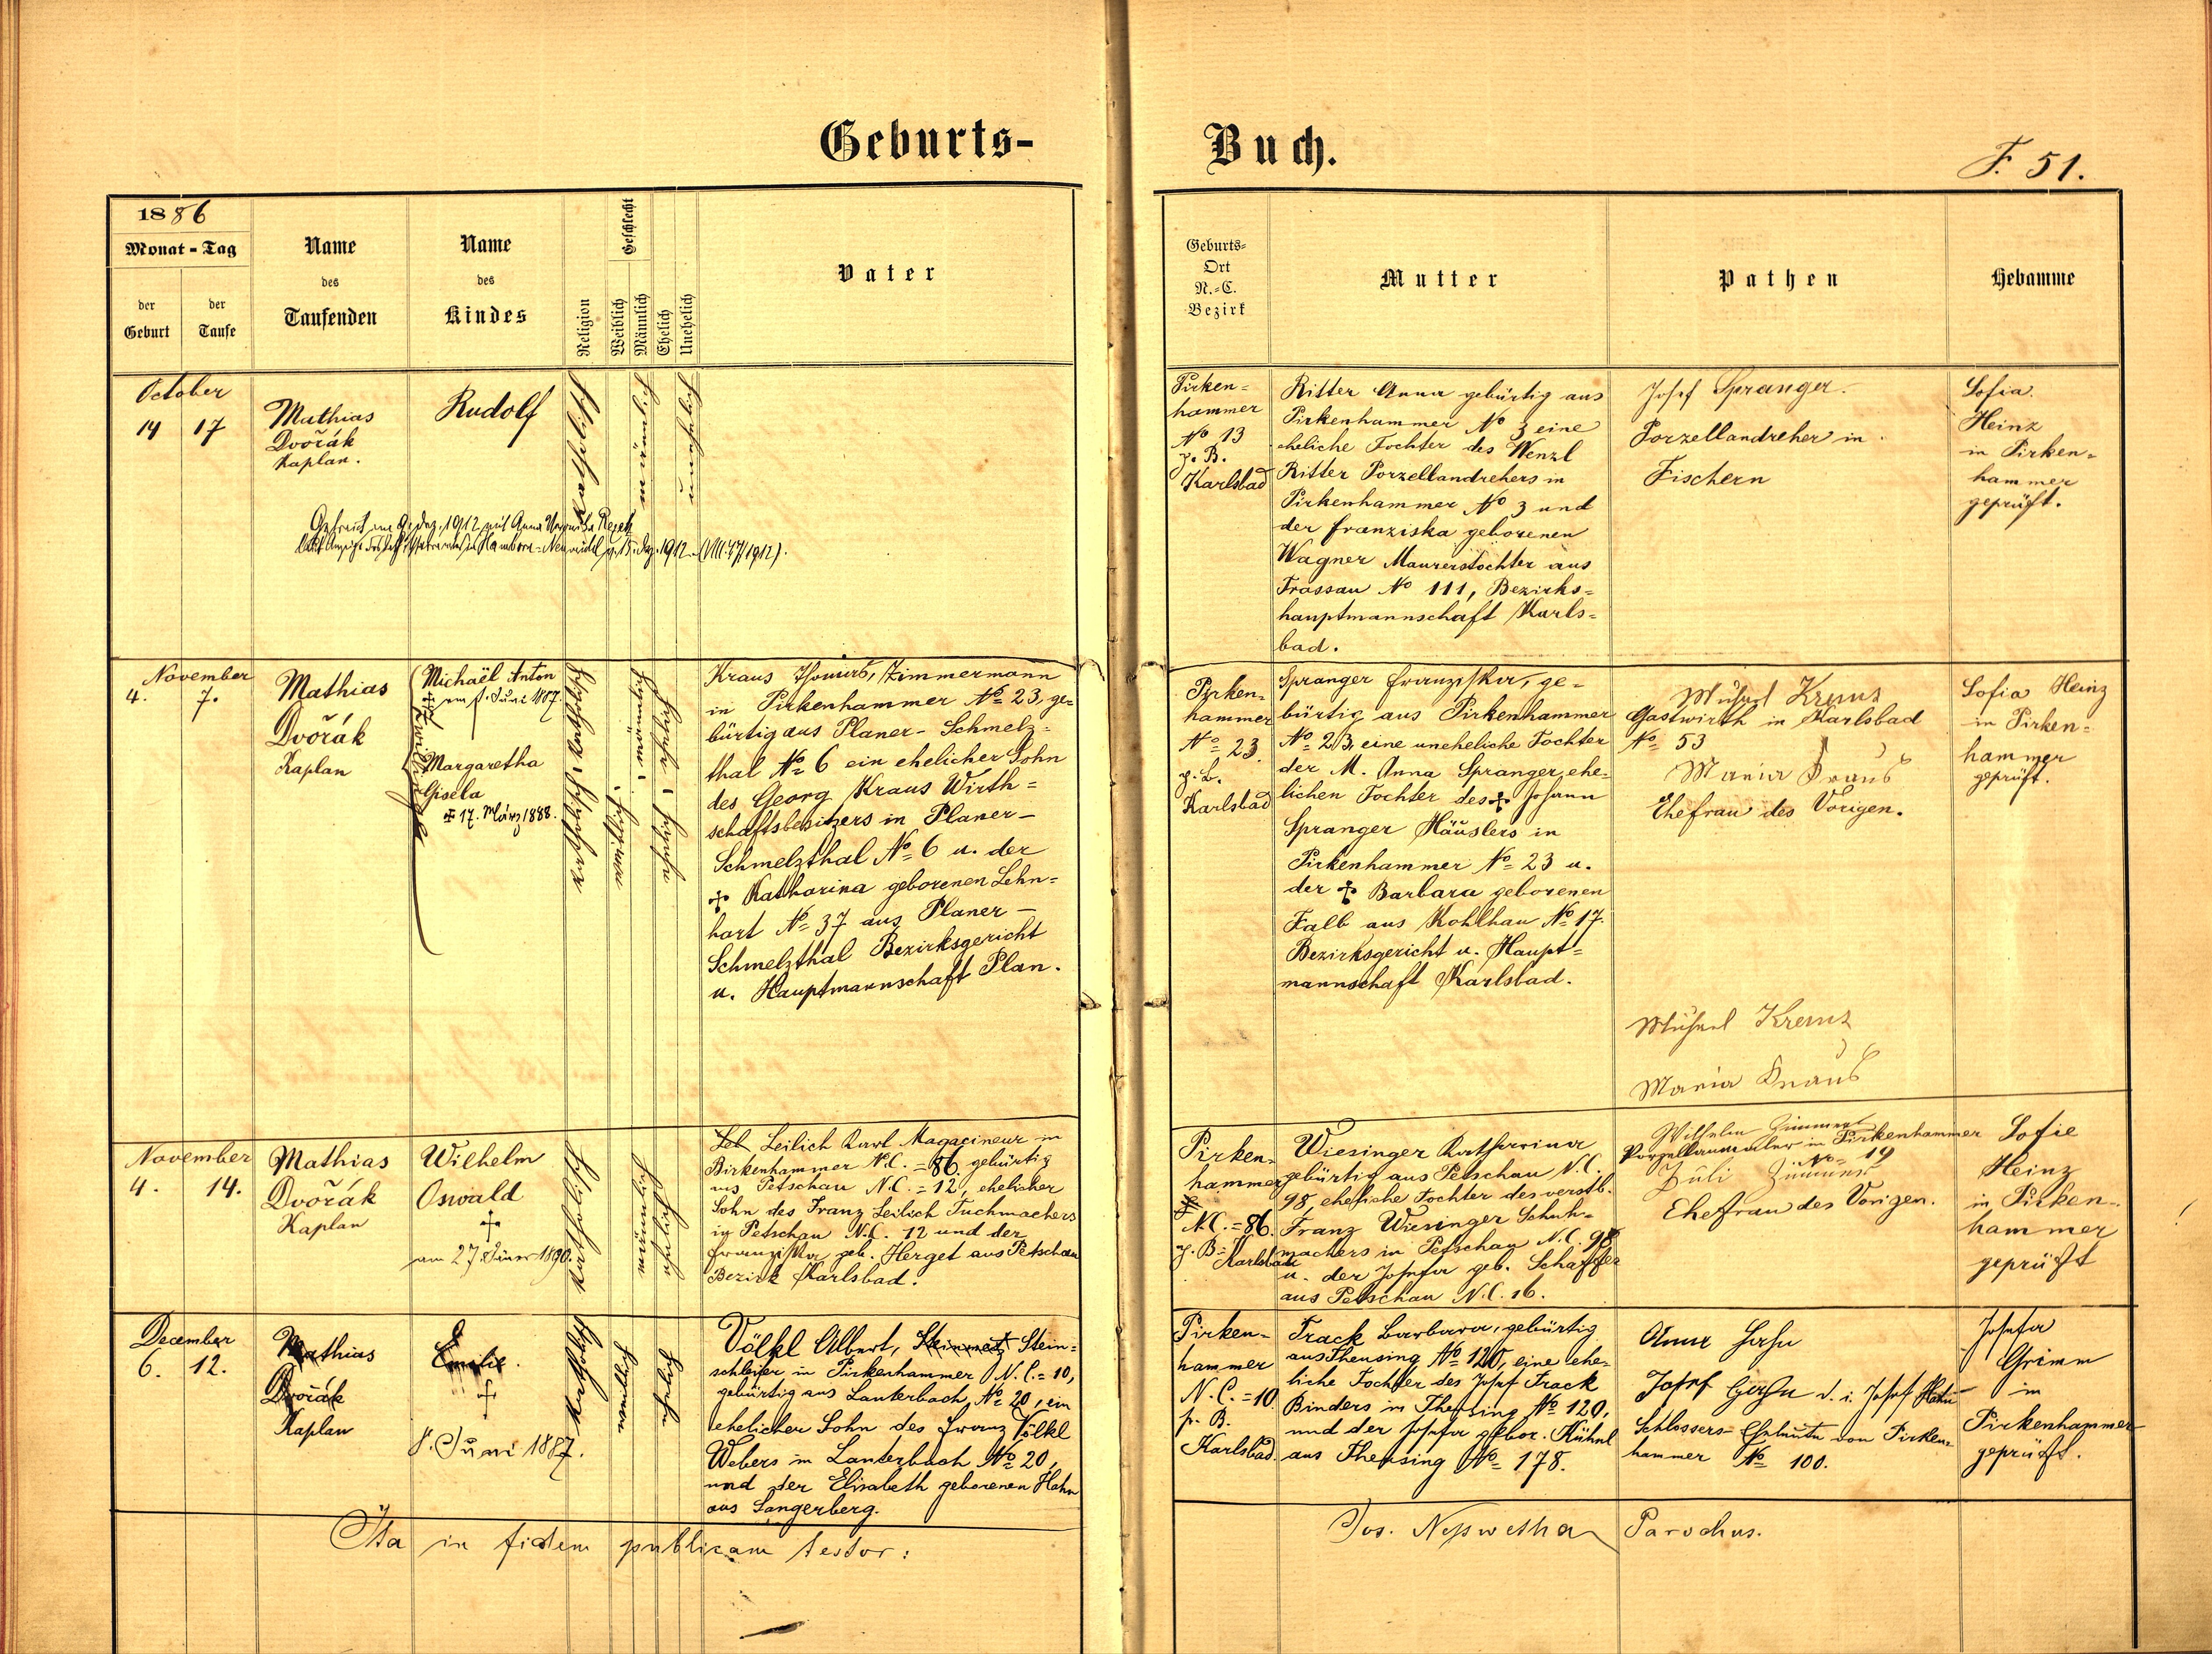 Geburts-
Buch.
F. 51.
1886
Monat - Tag
der
Geburt
der
Taufe
Name
des
Taufenden
Name
des
Kindes
Religion
Geschlecht
Weiblich
Männlich
Ehelich
Unehelich
Vater
Geburts-
Ort
N.-C.
Bezirk
Mutter
Pathen
Hebamme
October
14 17
Mathias
Dvořák
Kaplan.
Rudolf
katholisch
männlich
unehelich
1912 mit Anna
1912 (VIII. 47/1912).
Pirken-
hammer
No 13
g. B.
Karlsbad
Ritter Anna gebürtig aus
Pirkenhammer No 3 eine
eheliche Tochter des Wenzl
Ritter Porzellandrehers in
Pirkenhammer No 3 und
der Franziska geborenen
Wagner Maurerstochter aus
Trossau No 111, Bezirks-
hauptmannschaft Karls-
bad.
Josef Spranger.
Porzellandreher in
Fischern
Sofia
Heinz
in Pirken-
hammer
geprüft.
November
4. 7.
Mathias
Dvořák
Kaplan
Michaël Anton
Juni 1887.
Zwillinge
Margaretha
Gisela
✠ 17. März 1888.
Kraus Thomas, Zimmermann
in Pirkenhammer No 23, ge-
bürtig aus Planer-Schmelz-
thal No 6 ein ehelicher Sohn
des Georg Kraus Wirth-
schaftsbesitzers in Planer-
Schmelzthal No 6 u. der
✠ Katharina geborenen Lehn-
hart No 37 aus Planer-
Schmelzthal Bezirksgericht
u. Hauptmannschaft Plan.
Pirken-
hammer
No 23.
Karlsbad
Spranger Franziska, ge-
bürtig aus Pirkenhammer
No 23, eine uneheliche Tochter
der M. Anna Spranger, ehe-
lichen Tochter des ✠ Johann
Spranger Häuslers in
Pirkenhammer No 23 u.
der ✠ Barbara geborenen
Falb aus Kohlhau No 17.
Bezirksgericht u. Haupt-
mannschaft Karlsbad.
Michael Kraus
Gastwirth in Karlsbad
No 53
Maria Kraus
Ehefrau des Vorigen.
Michael Kraus
Maria Kraus
Sofia Heinz
in Pirken-
hammer
geprüft.
November
4. 14.
Mathias
Dvořák
Kaplan
Wilhelm
Oswald
✠
am 27. Jäner 1890.
katholisch
Leilich Karl Magazineur in
Birkenhammer N.C. = 86. gebürtig
aus Petschau N.C. = 12, ehelicher
Sohn des Franz Leilich Tuchmachers
in Petschau N.C. 12 und der
Franziska geb. Herget aus Petschau
Bezirk Karlsbad.
Pirken-
hammer
N.C. = 86.
g. B.
Karlsbad
Wiesinger Katharina
gebürtig aus Petschau N.C.
98, eheliche Tochter des verstb.
Franz Wiesinger Schuh-
machers in Petschau N.C. 98
u. der Josefa geb. Schaffer
aus Petschau N.C. 16.
Wilhelm Zimmert
Porzellanmaler in Pirkenhammer
No 19
Juli
Ehefrau des Vorigen.
Sofie
Heinz
in Pirken-
hammer
geprüft
December
6. 12.
Mathias
Dvořák
Kaplan
Emilie.
✠
8. Juni 1887.
katholisch
Völkl Albert, Steinmetz Stein-
schleifer in Pirkenhammer N.C. = 10,
gebürtig aus Lauterbach, No 20, ein
ehelicher Sohn des Franz Völkl
Webers in Lauterbach No 20,
und der Elisabeth geborenen Hahn
aus Sangerberg.
Pirken-
hammer
N.C. = 10
p. B.
Karlsbad.
Track Barbara, gebürtig
aus Theusing No 120, eine ehe-
liche Tochter des Josef Track
Binders in Theusing No 120,
und der Josefa gebor. Kühnl
aus Theusing No 178.
Anna Hahn
Josef Hahn d. i. Josef Hahn
Schlossers-Eheleute von Pirken-
hammer No 100.
Josefa
Grimm
in
Pirkenhammer
geprüft.
Ita in fidem publicam testor:
Jos. Parochus.